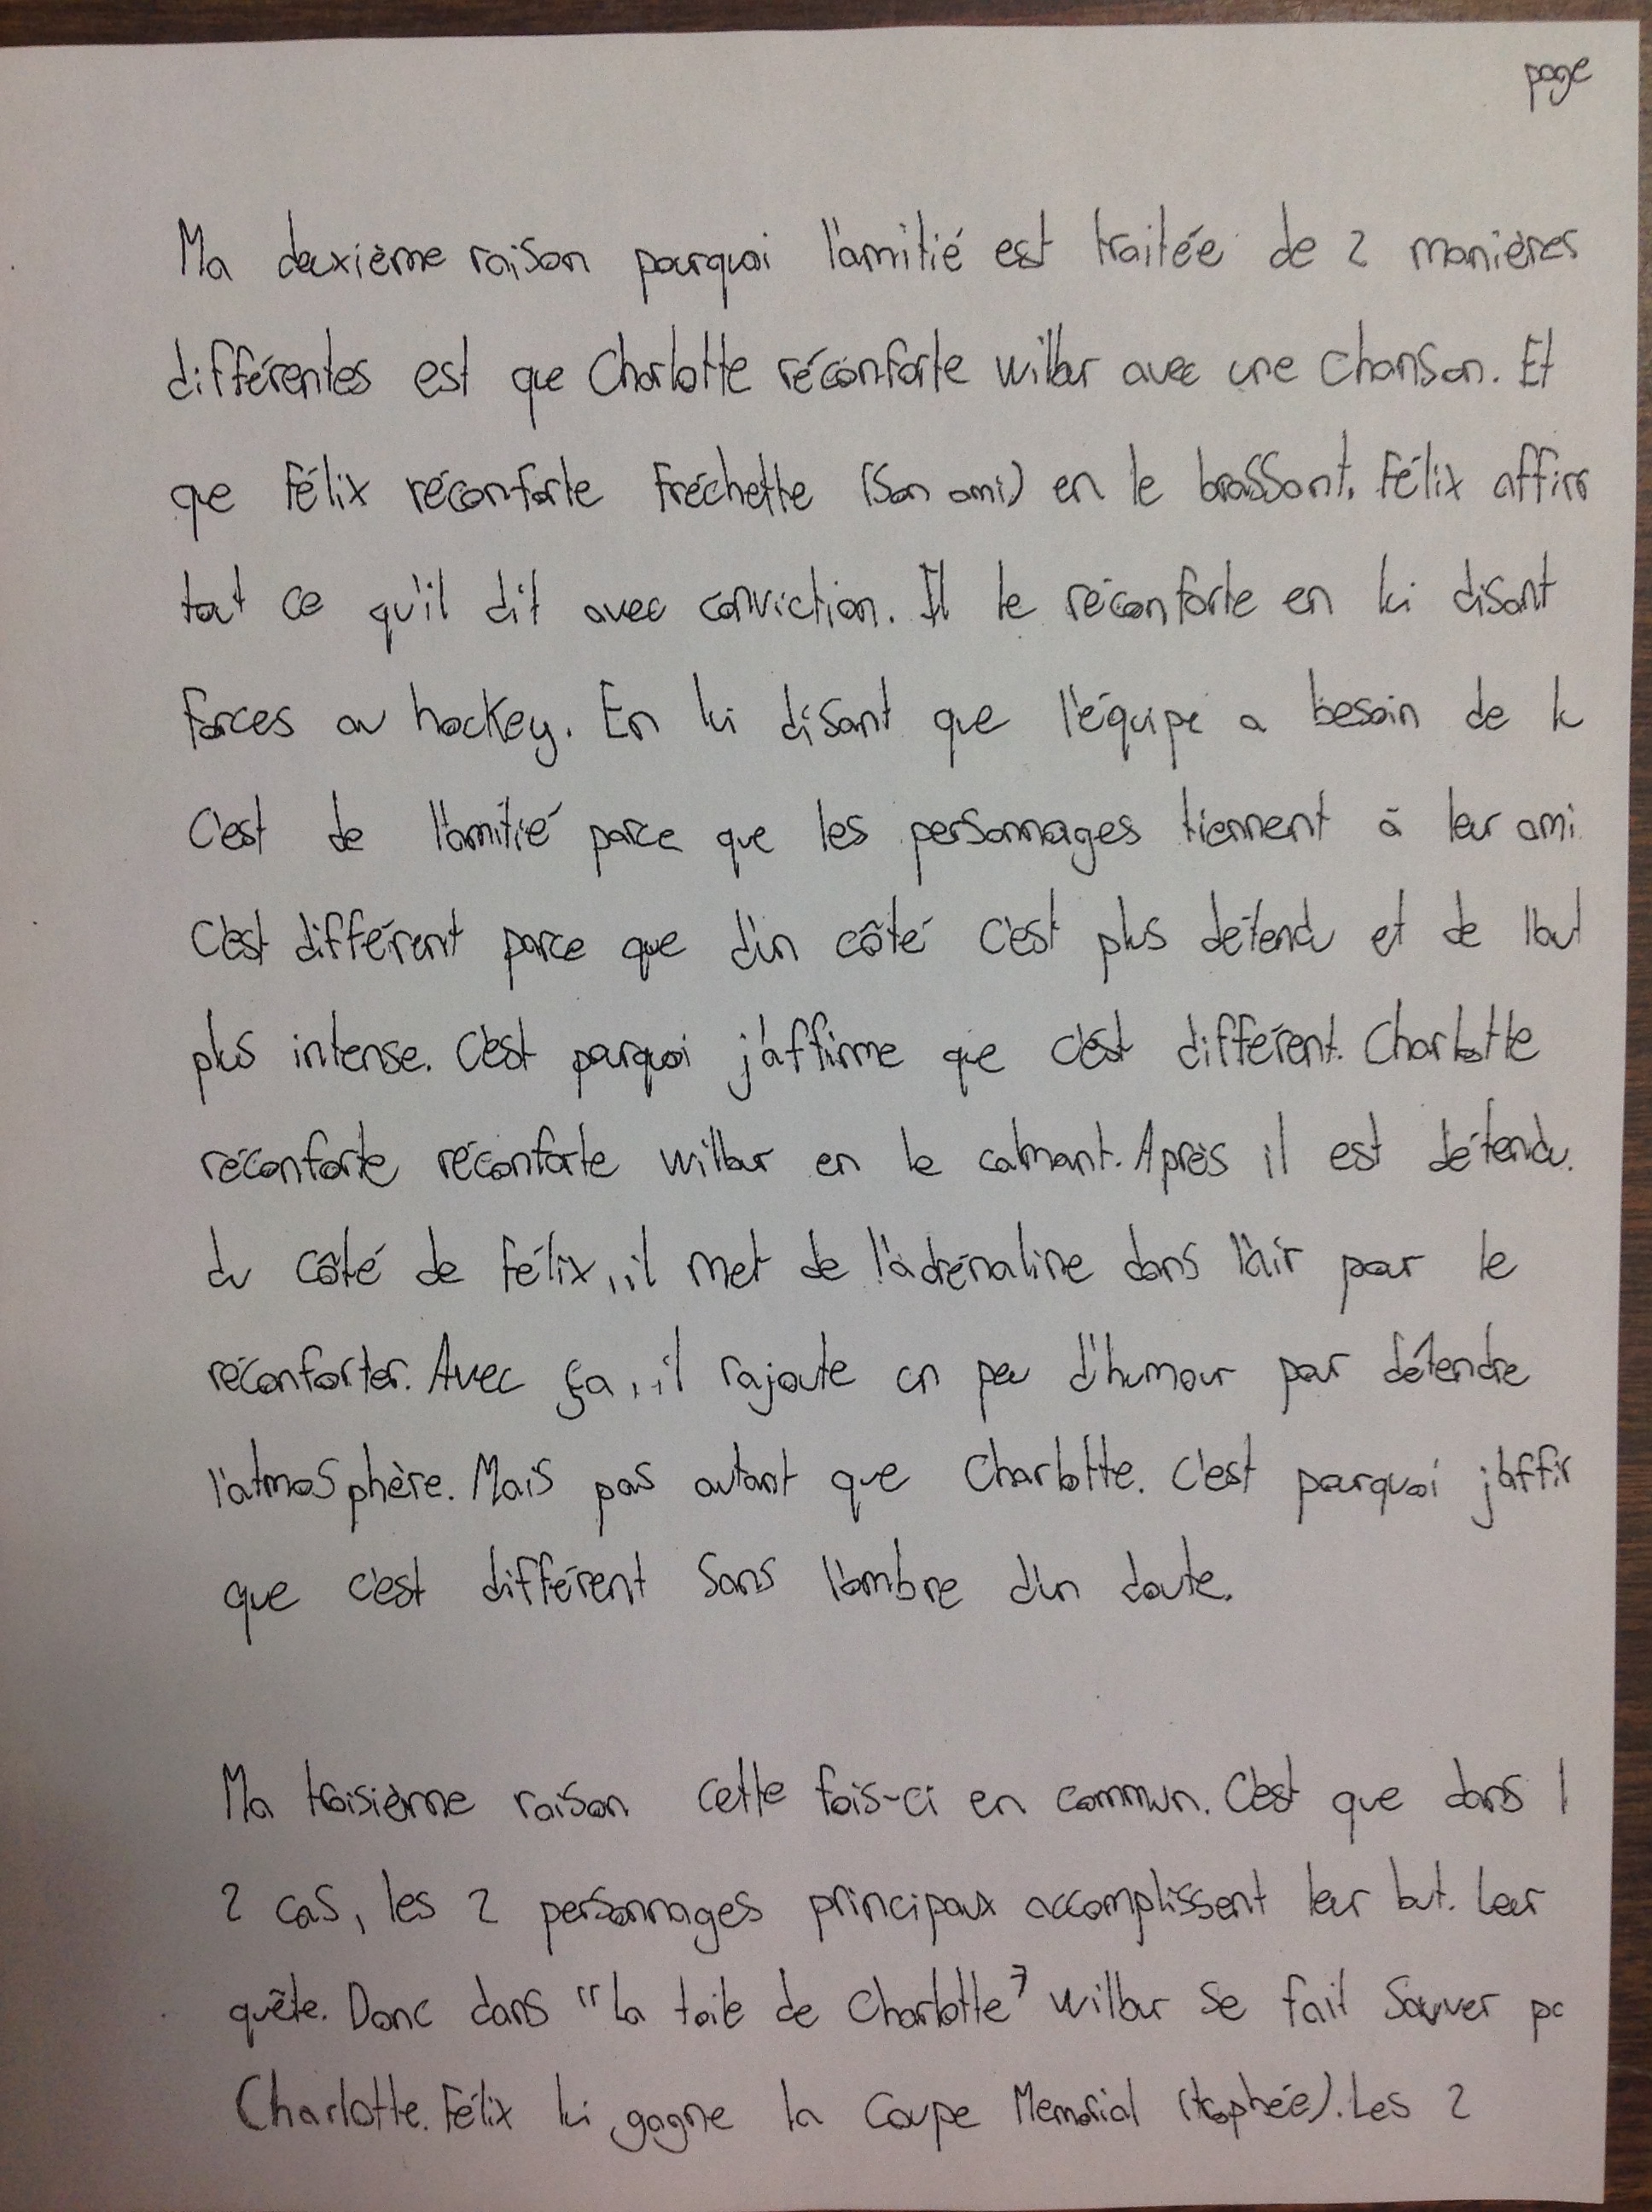 page
Ma deuxième raison pourquoi l'amitié est traitée de 2 manières
différentes est que Charlotte réconforte wilbur avec une chanson. Et
que Félix réconforte Fréchette (son ami) en le brassant. Félix affirm
tout ce qu'il dit avec conviction. Il le réconforte en lui disant
forces au hockey. En lui disant que l'équipe a besoin de lu
C'est de l'amitié parce que les personnages tiennent à leur ami
C'est différent parce que d'un côté c'est plus détendu et de l'aut
plus intense. C'est pourquoi j'affirme que c'est différent. Charlotte
réconforte réconforte wilbur en le calmant. Après il est détendu.
du côté de Félix, il met de l'adrénaline dans l'air pour le
réconforter. Avec ça, il rajoute un peu d'humour pour détendre
l'atmosphère. Mais pas autant que Charlotte. C'est pourquoi j'affir
que c'est différent sans l'ombre d'un doute.
Ma troisième raison cette fois-ci en commun. C'est que dans l
2 cas, les 2 personnages principaux accomplissent leur but. Leur
quête. Donc dans "La toile de Charlotte" wilbur se fait sauver pa
Charlotte. Félix lui gagne la Coupe Memorial (trophée). Les 2